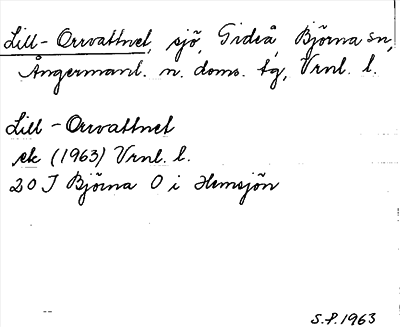 Lill-Orrvattnet, sjö, Gideå, Björna sn,
Ångermanl. n. doms. tg, Vrnl. l.
Lill-Orrvattnet
ek (1963) Vrnl. l.
20 J Björna O i Hemsjön
S.P. 1963